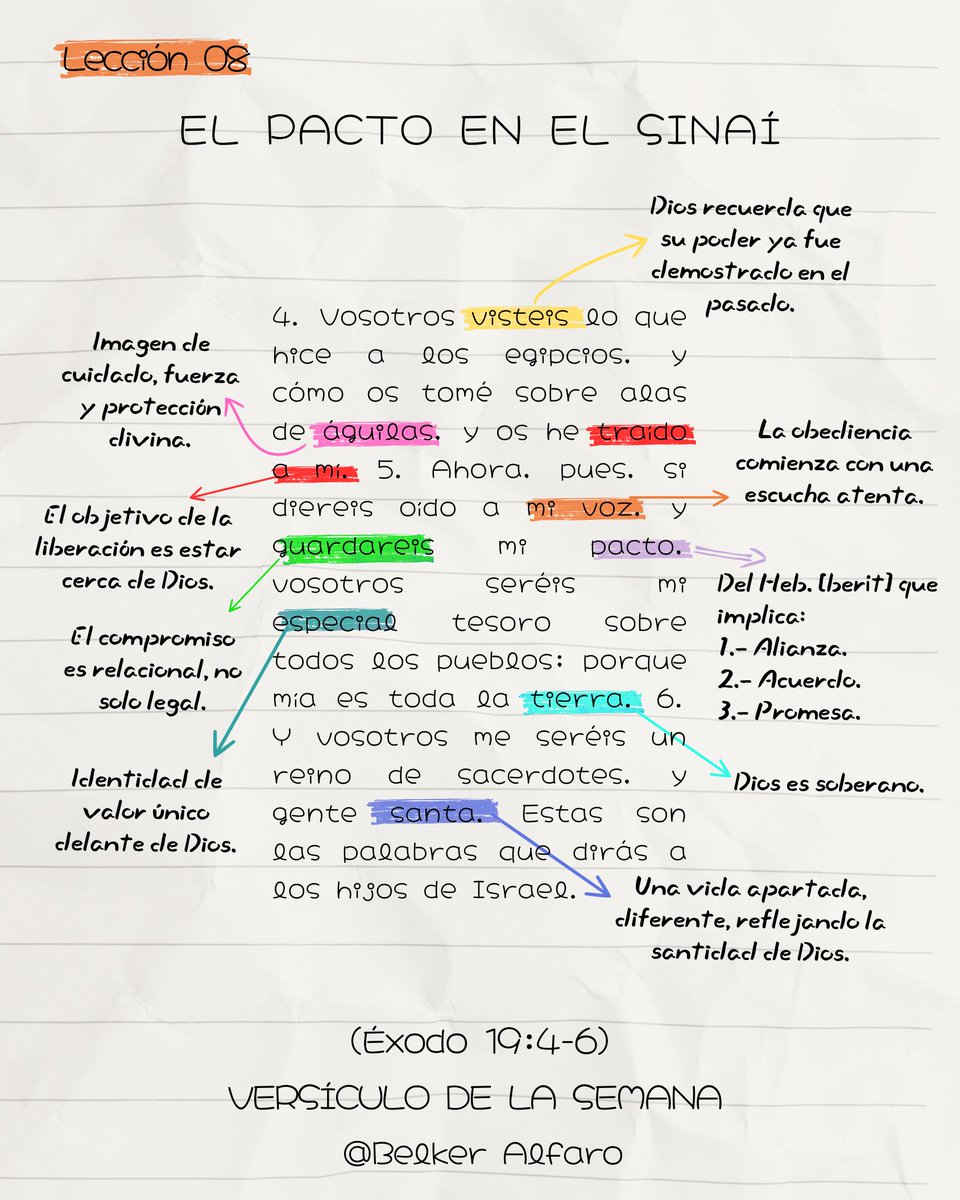 Lección 08
EL PACTO EN EL SINAÍ
Dios recuerda que
su poder ya fue
demostrado en el
pasado.
Imagen de
cuidado, fuerza
y protección
divina.
4. Vosotros visteis lo que
hice a los egipcios. y
cómo os tomé sobre alas
de águilas. y os he traído
a mí. 5. Ahora. pues. si
diereis oído a mi voz. y
guardareis mi pacto.
vosotros seréis mi
especial tesoro sobre
todos los pueblos: porque
mía es toda la tierra. 6.
Y vosotros me seréis un
reino de sacerdotes. y
gente santa. Estas son
las palabras que dirás a
los hijos de Israel.
La obediencia
comienza con una
escucha atenta.
El objetivo de la
liberación es estar
cerca de Dios.
Del Heb. [berit] que
implica:
1.- Alianza.
2.- Acuerdo.
3.- Promesa.
El compromiso
es relacional, no
solo legal.
Identidad de
valor único
delante de Dios.
Dios es soberano.
Una vida apartada,
diferente, reflejando la
santidad de Dios.
(Éxodo 19:4-6)
VERSÍCULO DE LA SEMANA
@Belker Alfaro